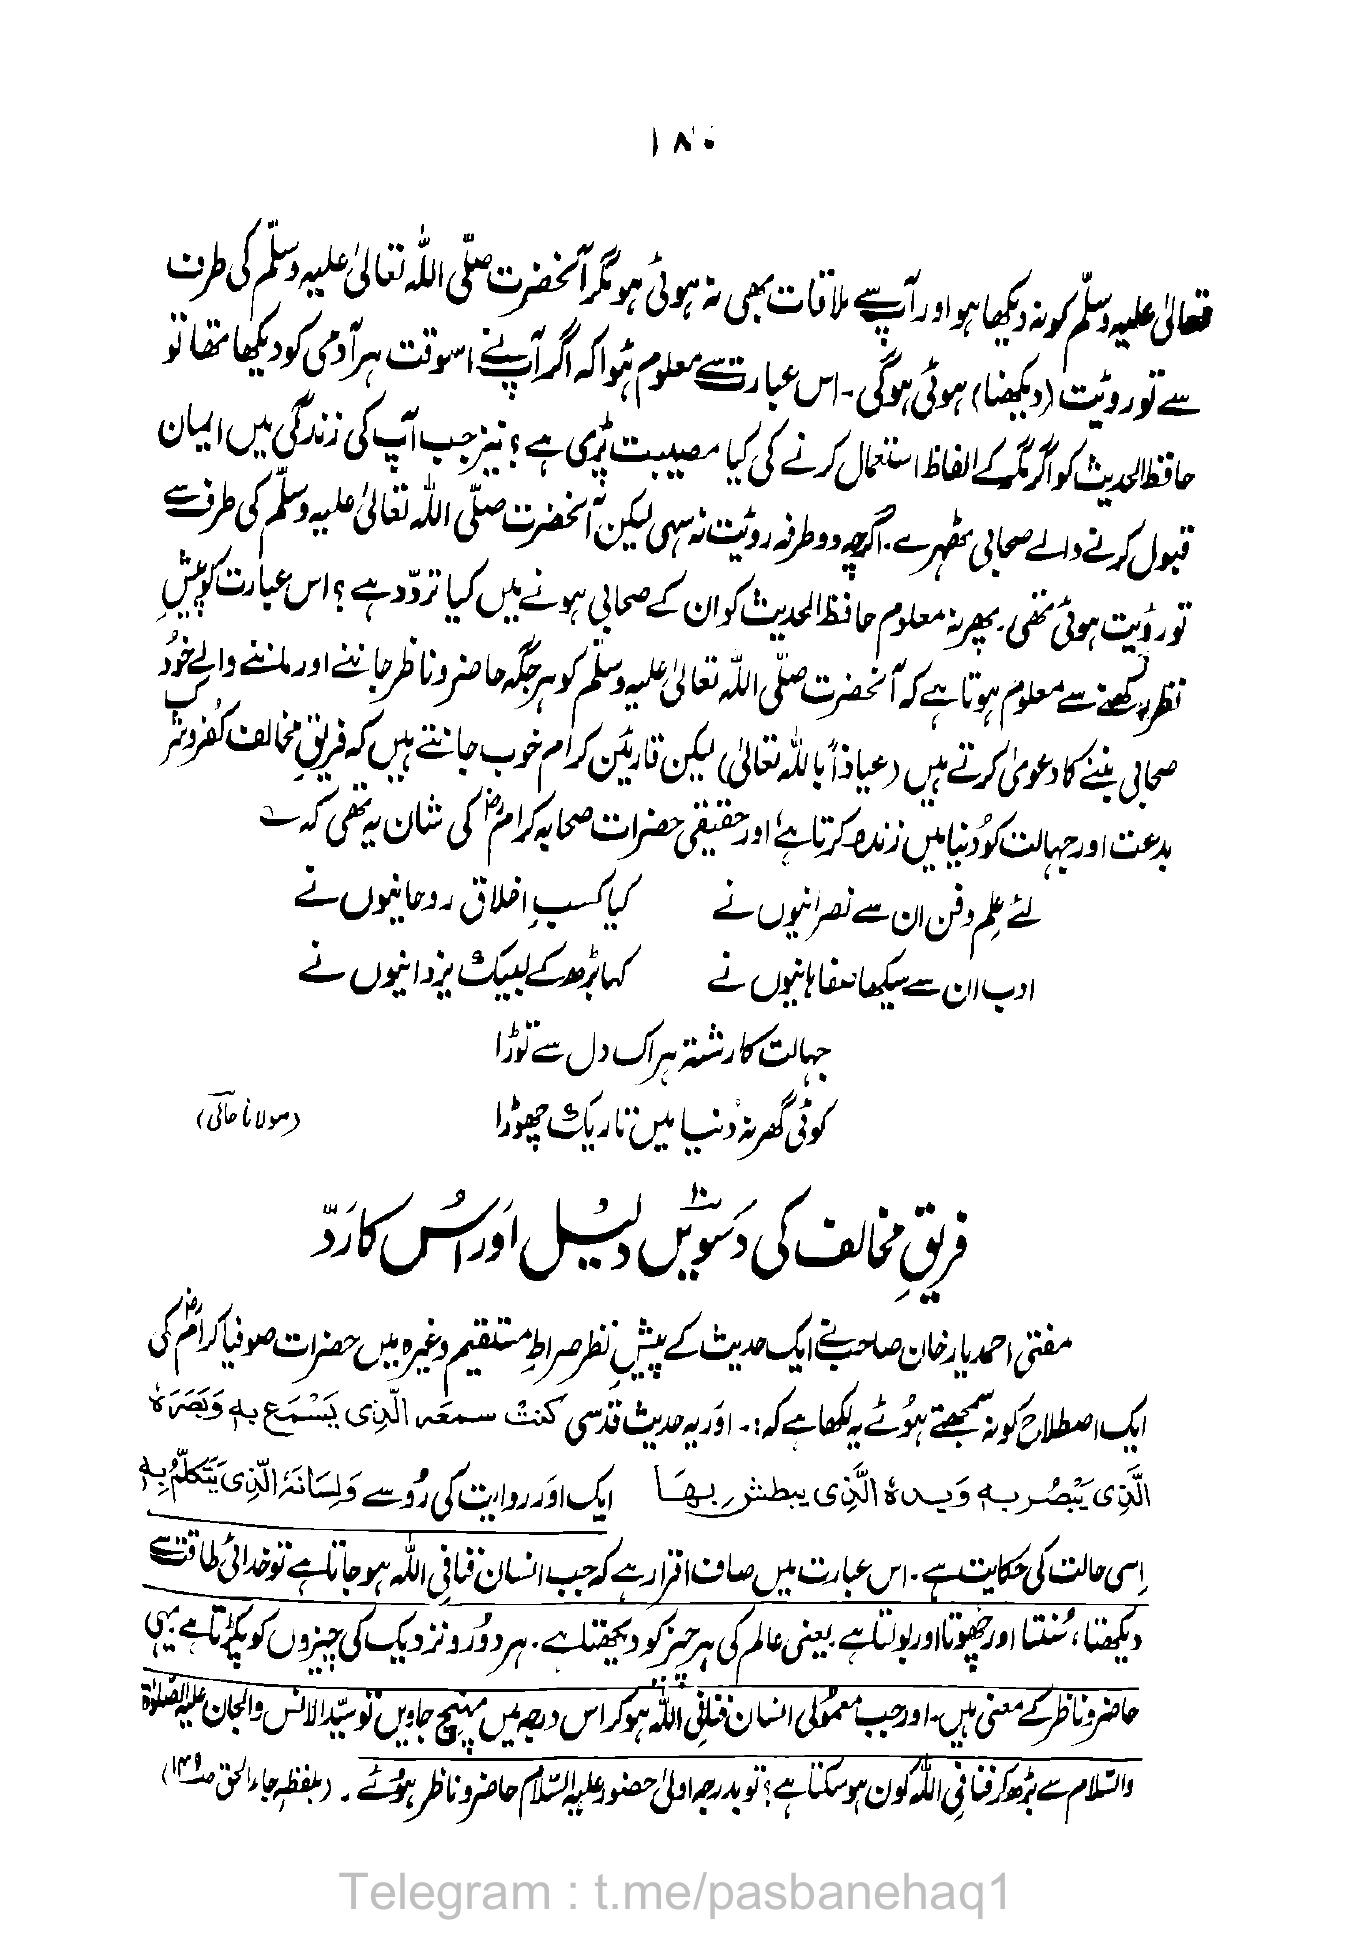 ۱۸۰
تعالیٰ علیہ وسلّم کو نہ دیکھا ہو اور آپ سے ملاقات بھی نہ ہوئی ہو مگر آنحضرت صلّی اللہ تعالیٰ علیہ وسلّم کی طرف
سے تو رویت (دیکھنا) ہوئی ہوگی۔ اس عبارت سے معلوم ہُوا کہ اگر آپ نے اسوقت ہر آدمی کو دیکھا تھا تو
حافظ الحدیث کو اگر مگر کے الفاظ استعمال کرنے کی کیا مصیبت پڑی ہے؟ نیز جب آپ کی زندگی میں ایمان
قبول کرنے والے صحابی ٹھہرے۔ اگرچہ دوطرفہ رویٔت نہ سہی لیکن آنحضرت صلّی اللہ تعالیٰ علیہ وسلّم کی طرف سے
تو رؤیت ہوئی تھی۔ پھر نہ معلوم حافظ الحدیث کو ان کے صحابی ہونے میں کیا تردّد ہے؟ اس عبارت کو پیشِ
نظر رکھنے سے معلوم ہوتا ہے کہ آنحضرت صلّی اللہ تعالیٰ علیہ وسلّم کو ہر جگہ حاضر و ناظر جاننے اور ماننے والے خود
صحابی بننے کا دعویٰ کرتے ہیں (عیاذاً باللہ تعالیٰ) لیکن قارئین کرام خوب جانتے ہیں کہ فریقِ مخالف کُفر و شرک
بدعت اور جہالت کو دُنیا میں زندہ کرتا ہے اور حقیقی حضرات صحابہ کرامؓ کی شان یہ تھی کہ ؎
لئے علِم و فن ان سے نصرانیوں نے کیا کسبِ اخلاق روحانیوں نے
ادب ان سے سیکھا صفاہانیوں نے کہا بڑھ کے لبیک یزدانیوں نے
جہالت کا رشتہ ہر اک دل سے توڑا
کوئی گھر نہ دُنیا میں تاریک چھوڑا (مولانا حالی)
فریقِ مخالف کی دَسویں دلیل اَور اُس کا رَدّ
مفتی احمد یار خان صاحب نے ایک حدیث کے پیشِ نظر صراطِ مستقیم وغیرہ میں حضرات صوفیا کرامؒ کی
ایک اصطلاح کو نہ سمجھتے ہوُئے یہ لکھا ہے کہ:۔ اور یہ حدیث قدسی کنت سمعہ الّذی یَسْمَع بہ وَبَصَرَہٗ
الَّذِی یَبْصُر بہ وَیدہٗ الَّذِی یبطش بھَا ایک اَور روایت کی رُو سے وَلِسَانَہٗ الَّذِی یَتَکَلَّمُ بِہٖ
اِسی حالت کی حکایت ہے۔ اس عبارت میں صاف اقرار ہے کہ جب انسان فنا فی اللہ ہو جاتا ہے تو خدائی طاقت سے
دیکھتا، سُنتا اور چھوتا اور بولتا ہے یعنی عالم کی ہر چیز کو دیکھتا ہے۔ ہر دُور و نزدیک کی چیزوں کو پکڑتا ہے یہی
حاضر و ناظر کے معنی ہیں۔ اور جب معمُولی انسان فنا فی اللہ ہو کر اس درجہ میں پہنچ جاویں تو سیّد الانس والجان علیہ الصّلوٰۃ
والسّلام سے بڑھ کر فنا فی اللہ کون ہو سکتا ہے؟ تو بدرجہ اولیٰ حضور علیہ السّلام حاضر و ناظر ہوُئے۔ (بلفظہٖ جاء الحق صـ۱۴۹)
Telegram : t.me/pasbanehaq1